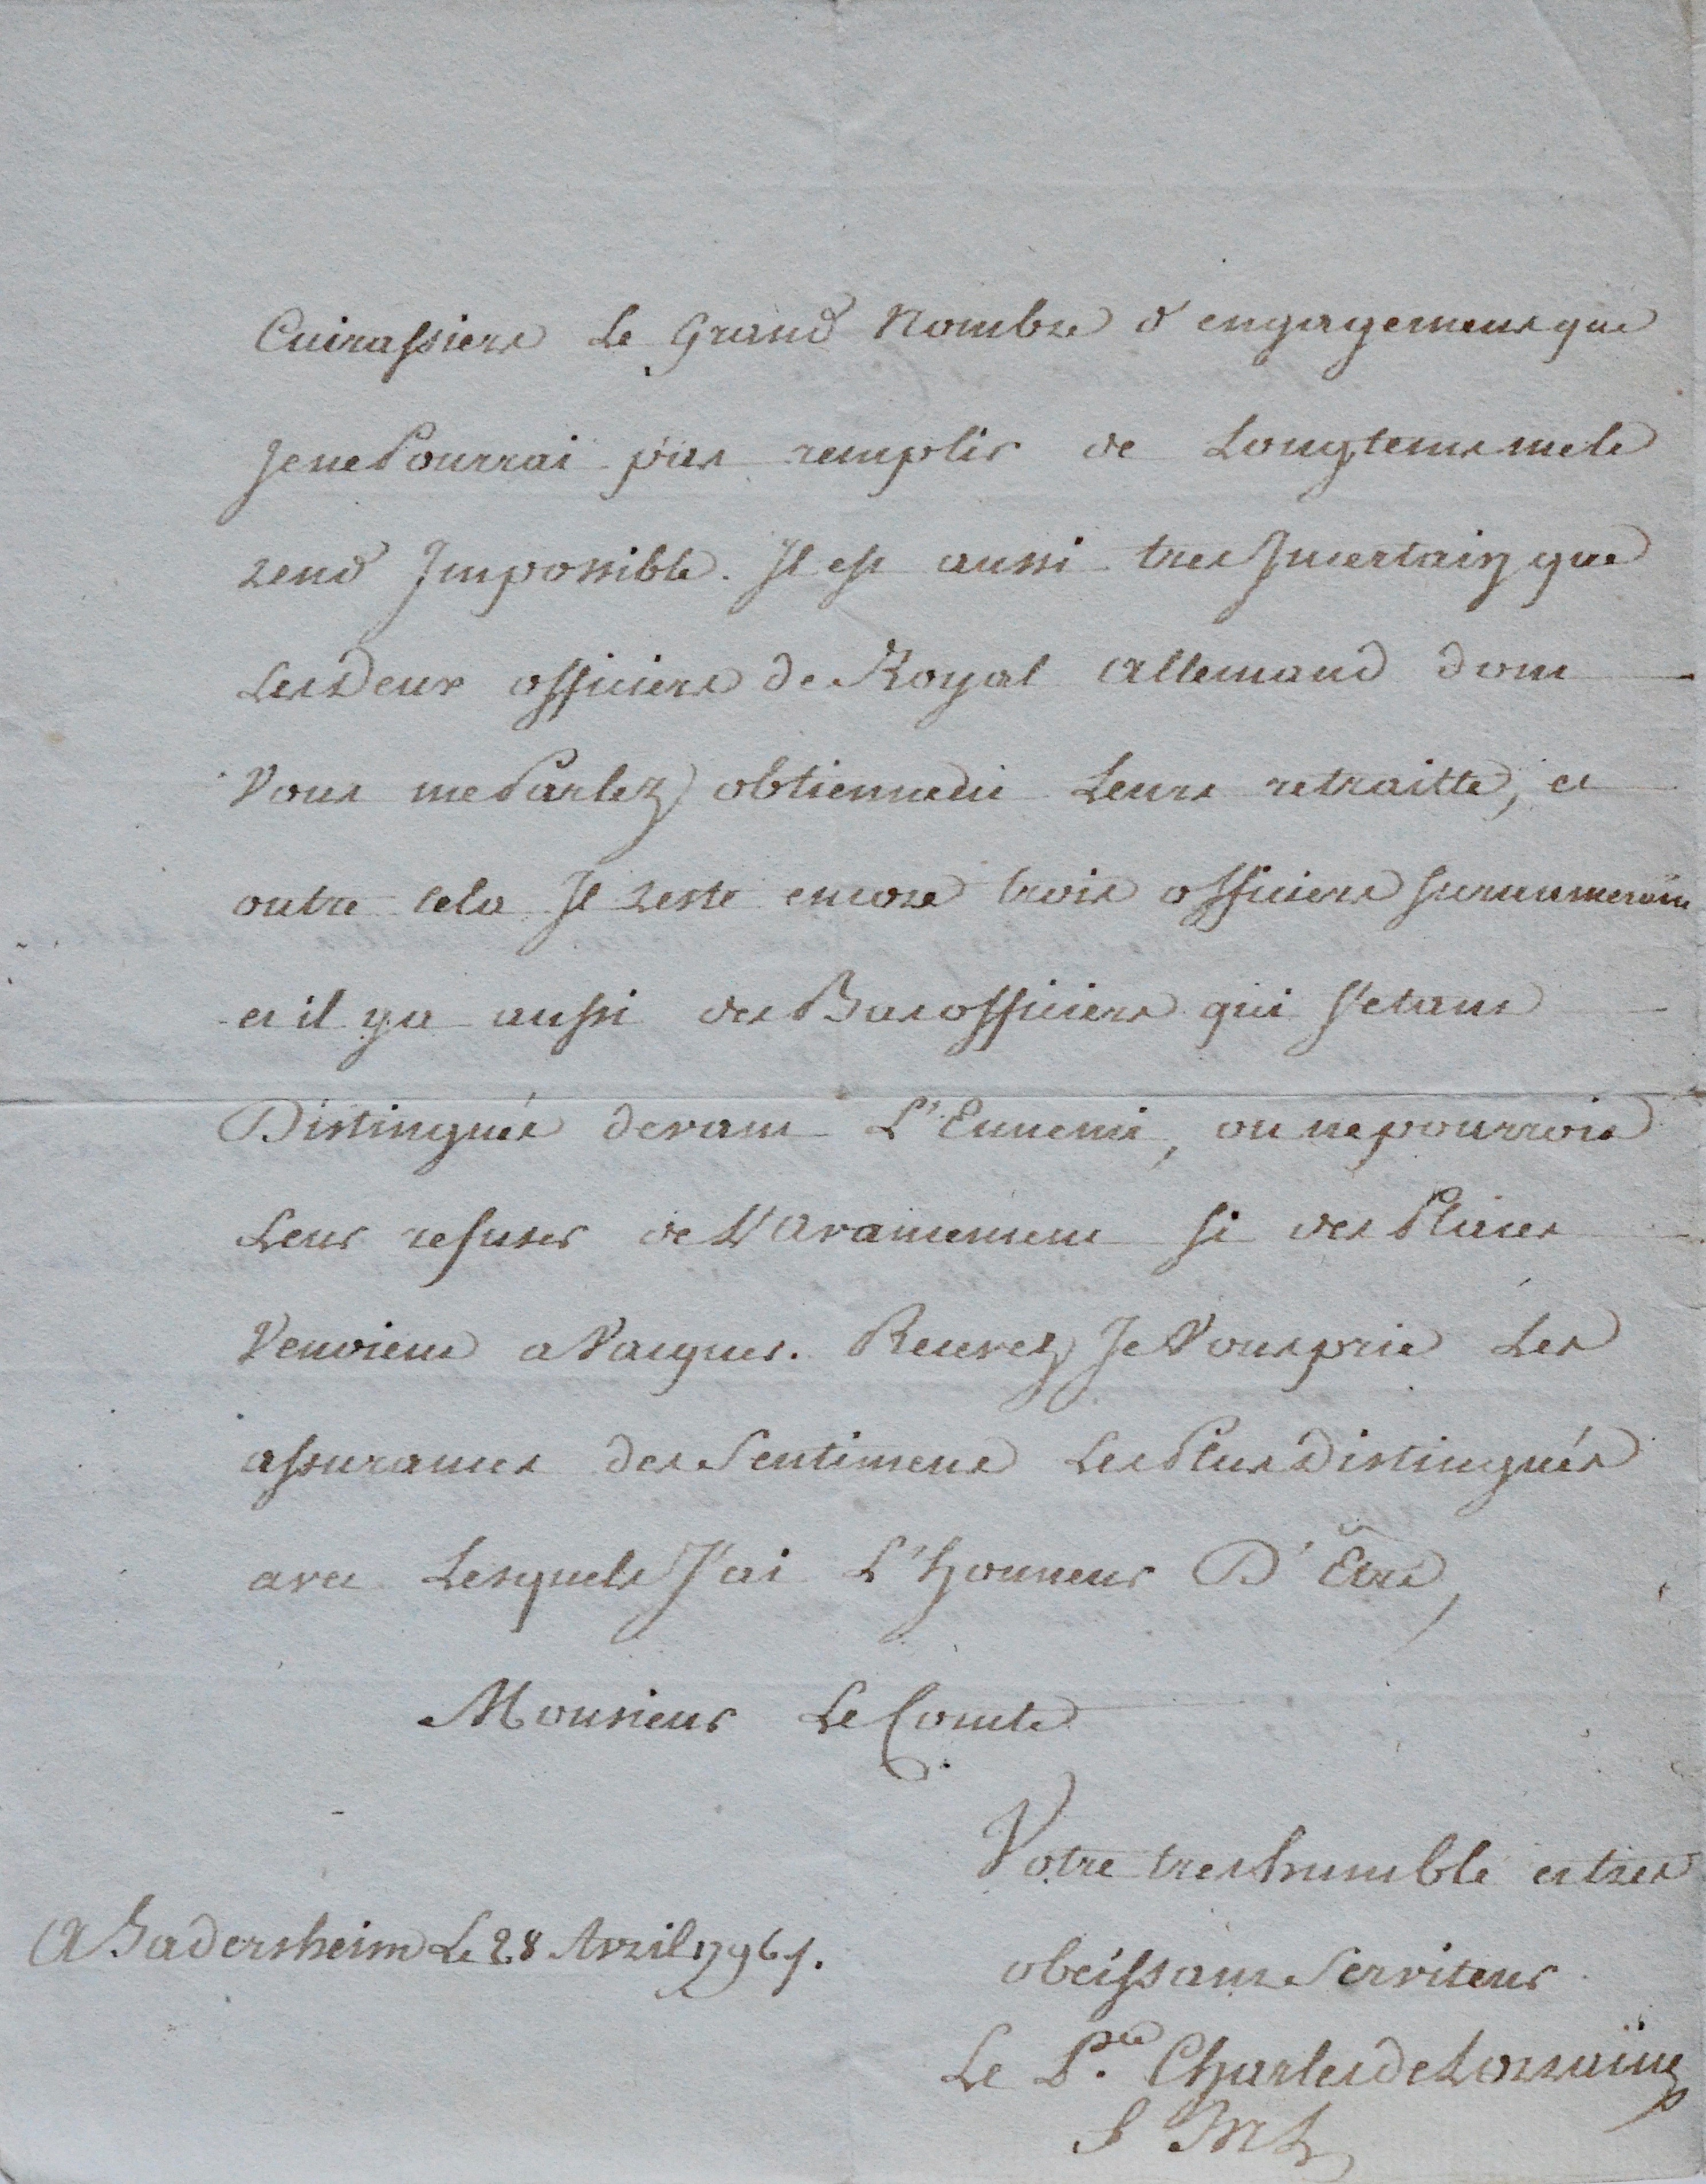 Cuirassiers Le Grand Nombre d'engagemens que
Je ne Pourrai pas remplir de Longtems me le
rend Impossible. Il est aussi tres Incertain que
Les Deux officiers de Royal Allemand dont
Vous me Parlez obtiennent Leurs retraitte, et
outre cela Il reste encore trois officiers surnumerair
et il y a aussi des Bas officiers qui s'etant
Distingués devant L'Ennemi, on ne pourrois
Leur refuser de L'Avancement si des Places
Venoient a Vaquer. Recevez Je Vous prie Les
assurances des Sentimens Les Plus Distingués
avec Lesquels J'ai L'honneur D'Être,
Monsieur Le Comte
Votre tres humble et tres
obeissant Serviteur
A Badersheim Le 28 Avril 1796.
Le P.ce Charles de Lorraine